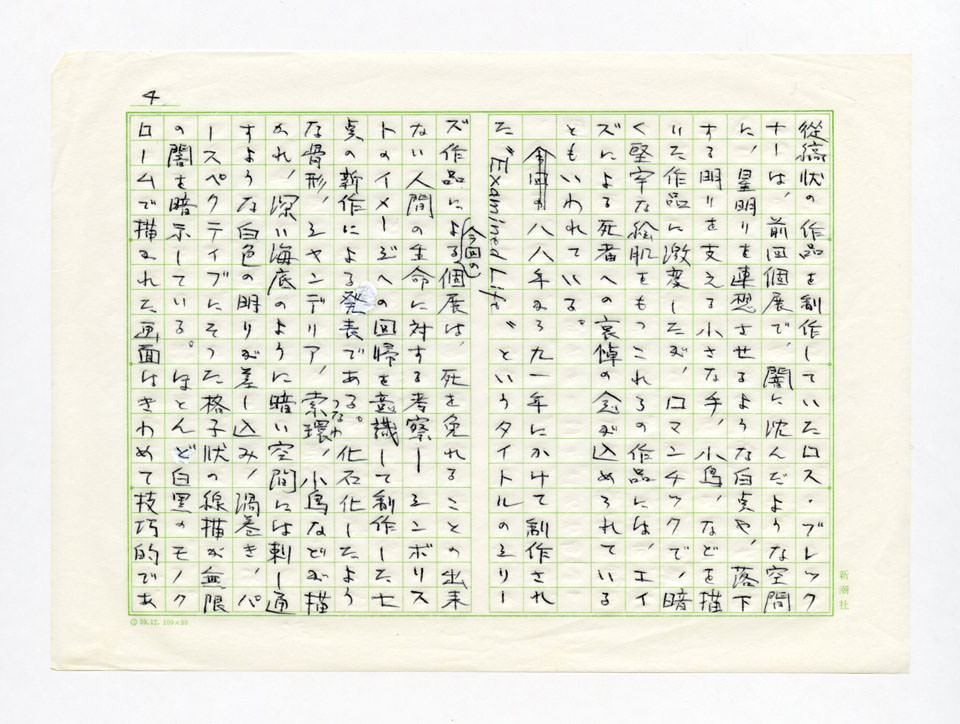 4
従縞状の作品を制作していたロス・ブレック
ナーは、前回個展で、闇に沈んだような空間
に、星明りを連想させるような白点や、落下
する明りを支える小さな手、小鳥、などを描
いた作品に激変したが、ロマンチックで、暗
く堅牢な絵肌をもつこれらの作品には、エイ
ズによる死者への哀悼の念が込められている
ともいわれている。
今回の八八年から九一年にかけて制作され
た“Examined Life”というタイトルのシリー
ズ作品による今回の個展は、死を免れることの出来
ない人間の生命に対する考察ーシンボリス
トのイメージへの回帰を意識して制作した七
点の新作による発表である。化石化したよう
な骨形、シャンデリア、索環、小鳥などが描
かれ、深い海底のように暗い空間には刺し通
すような白色の明りが差し込み、渦巻き、パ
ースペクティブにそった格子状の線描が無限
の闇を暗示している。ほとんど白黒のモノク
ロームで描かれた画面はきわめて技巧的であ
つなわ
新潮社
59.12. 100×50